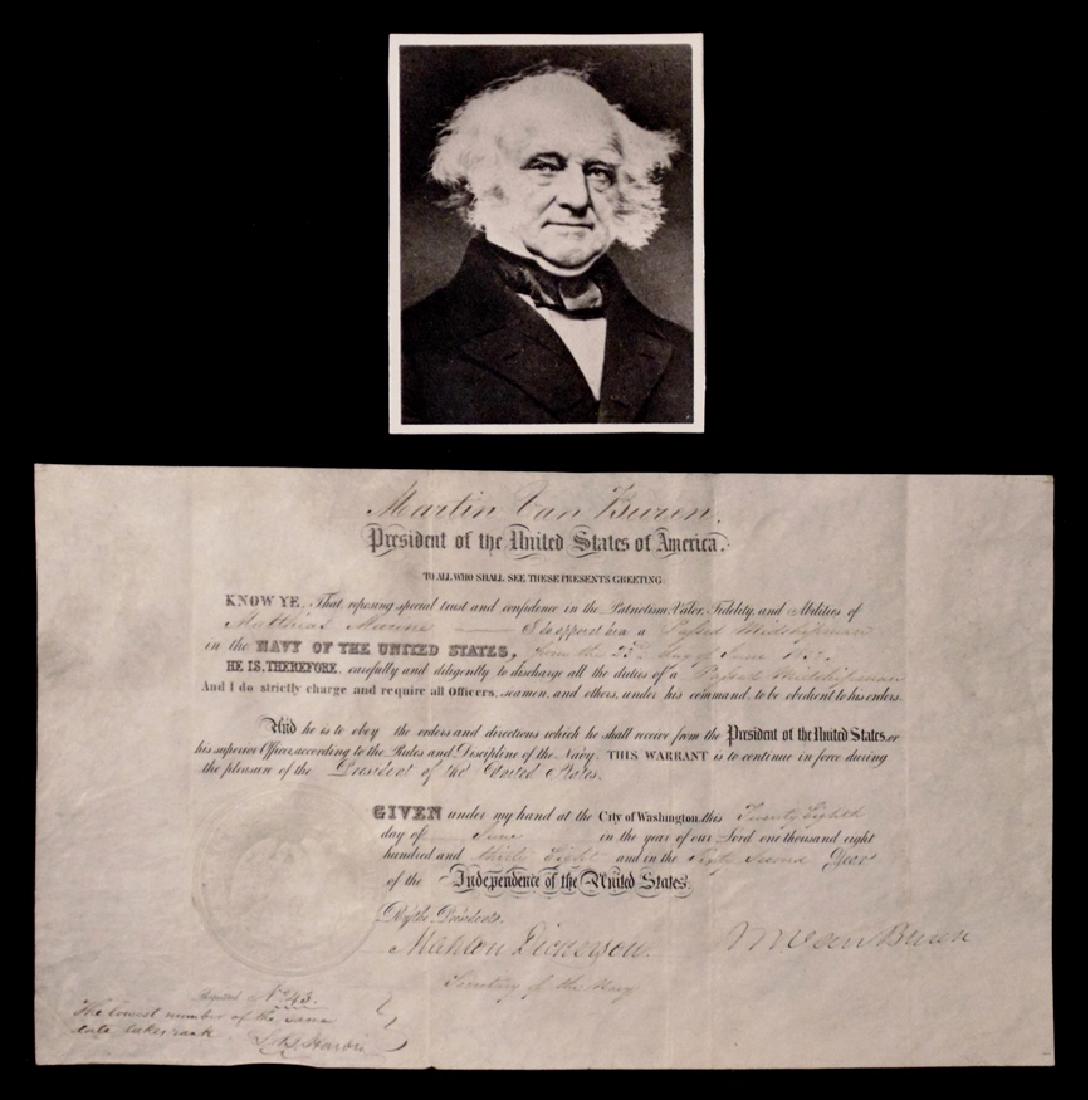 Martin Van Buren,
President of the United States of America.
TO ALL WHO SHALL SEE THESE PRESENTS GREETING
KNOW YE, That reposing special trust and confidence in the Patriotism, Valor, Fidelity, and Abilities of
Matthias Marine I do appoint him a Passed Midshipman
in the NAVY OF THE UNITED STATES, from the 23rd day of June
HE IS, THEREFORE, carefully and diligently to discharge all the duties of a Passed Midshipman
And I do strictly charge and require all Officers, seamen, and others, under his command, to be obedient to his orders.
And he is to obey the orders and directions which he shall receive from the President of the United States, or
his superior Officer, according to the Rules and Discipline of the Navy. THIS WARRANT is to continue in force during
the pleasure of the President of the United States.
GIVEN under my hand at the City of Washington, this Twenty Eighth
day of June in the year of our Lord one thousand eight
hundred and thirty Eight and in the Sixty Second Year
of the Independence of the United States.
By the President,
Mahlon Dickerson. M Van Buren
Secretary of the Navy
Registered No. 43.
The lowest number of the same
date takes rank